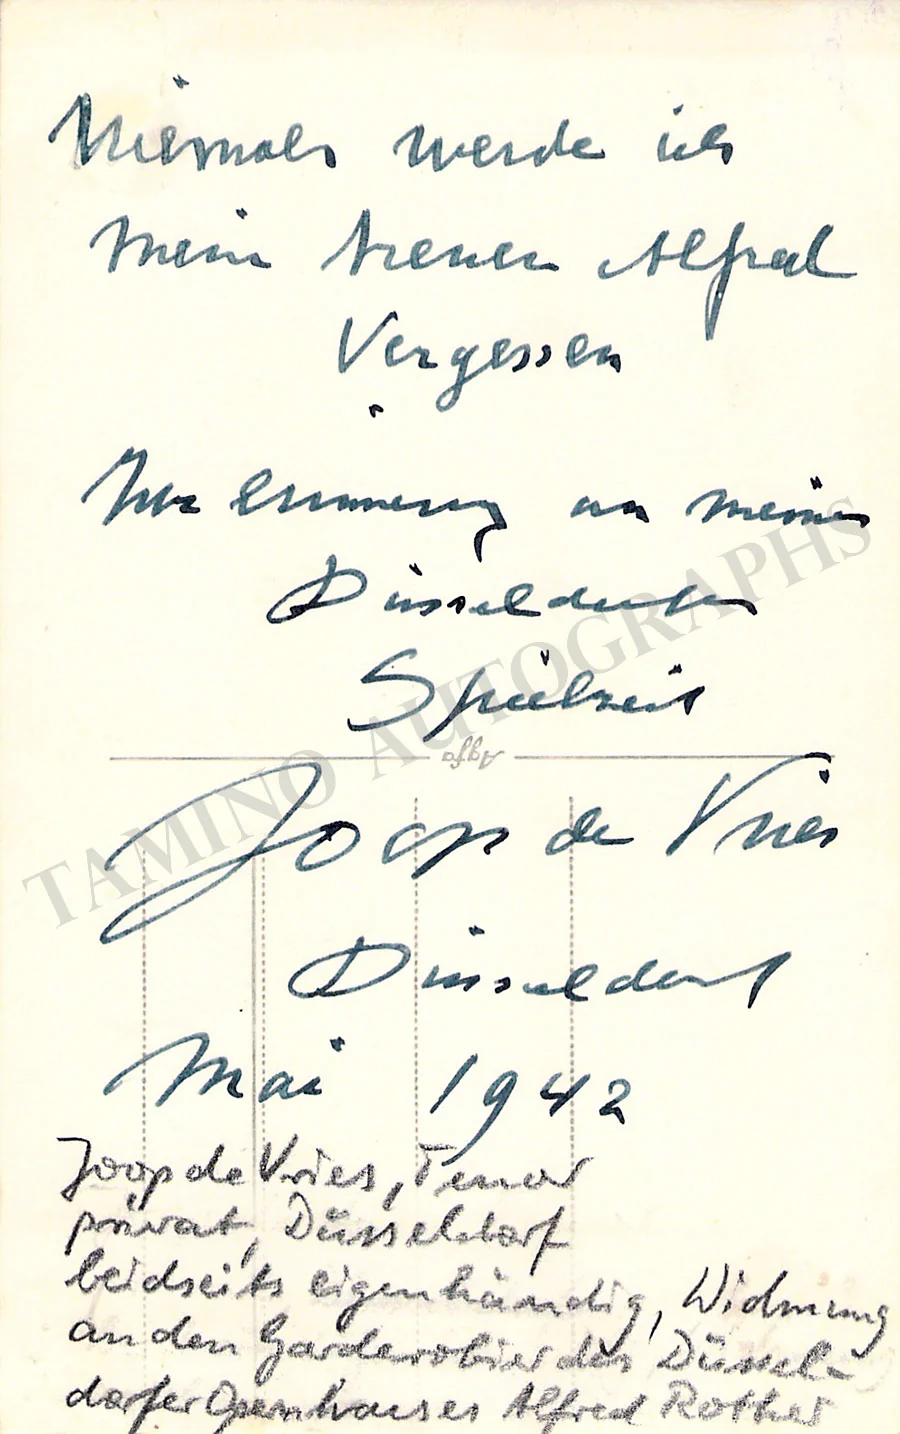 Niemals werde ich
mein treuen Alfred
Vergessen
Zur Erinnerung an meine
Düsseldorfer
Spielzeit
Agfa
Joop de Vries
Düsseldorf
Mai 1942
Joop de Vries, Tenor
privat, Düsseldorf
beidseits eigenhändig, Widmung
an den Garderobier des Düssel-
dorfer Opernhauses Alfred Rother
TAMINO AUTOGRAPHS